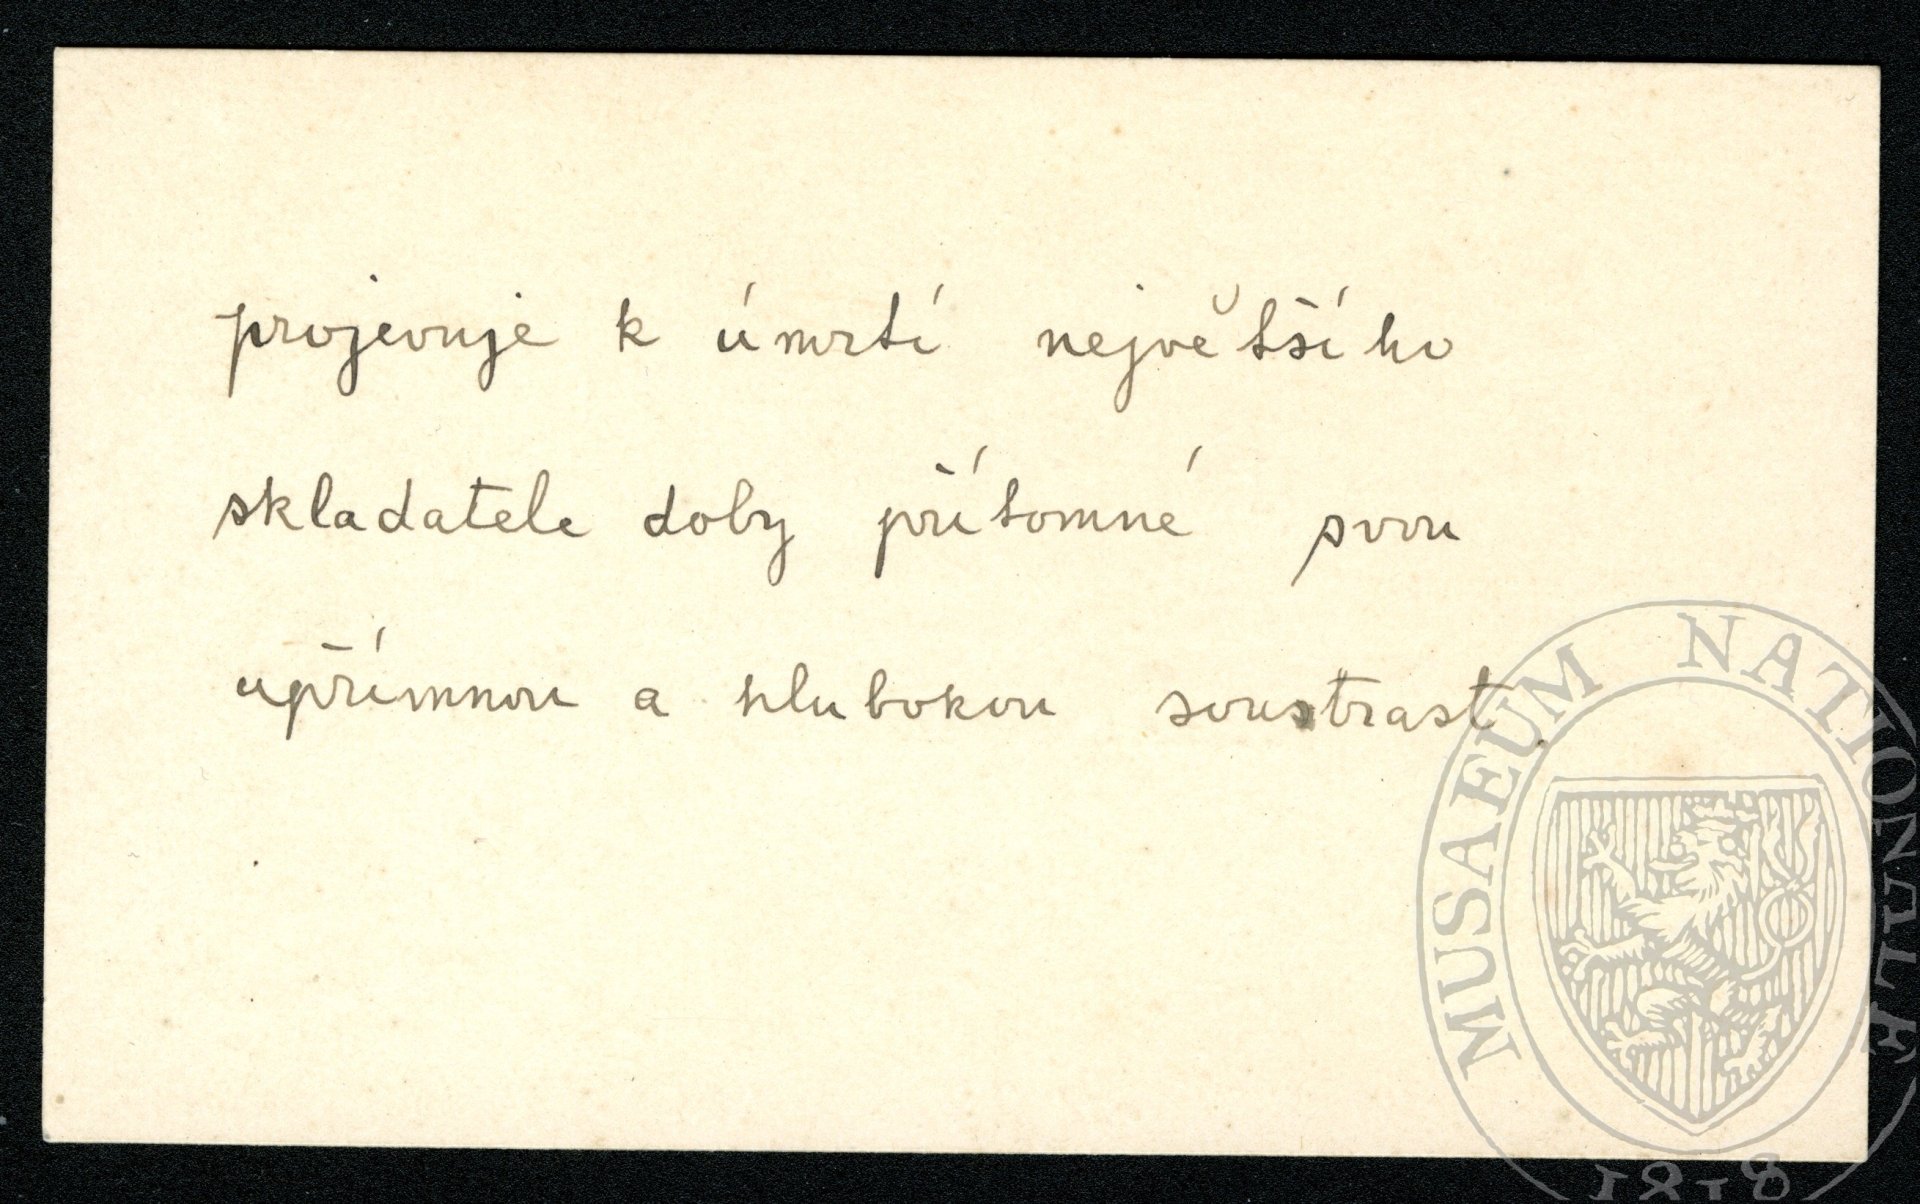 projevuje k úmrtí největšího
skladatele doby přítomné svou
upřímnou a hlubokou soustrast.
MUSAEUM NATIONALE
1818